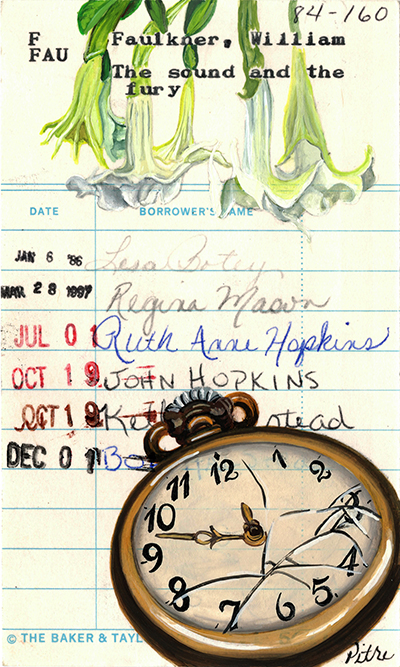 84-160
F Faulkner, William
FAU
The sound and the
fury
DATE BORROWER'S NAME
JAN 6 '86 Lesa Botey
MAR 28 1997 Regina Mason
JUL 01 Ruth Anne Hopkins
OCT 19 JOHN HOPKINS
OCT 19
DEC 01
12
1
2
3
4
5
6
7
8
9
10
11
© THE BAKER & TAYL
Pitre